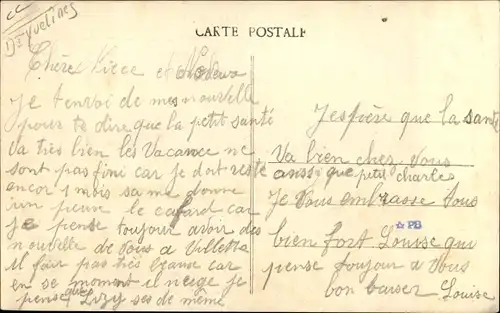 CC
D=Yvelines
CARTE POSTALE
Chère Niece et Neveux
Je tenvoi de mes nouvelle
pour te dire que la petit santé
va très bien les Vacance ne
sont pas fini car je doit resté
encor 1 mois sa me donne
un peux le cafard car
je pense toujour avoir des
nouvelle de vous a Villette
il fair pas très beaux car
en se moment il neige je
pense que Lizy ses de même
Jespère que la santé
Va bien chez Vous
aussi que petit charles
Je Vous embrasse tous
PB
bien fort Louise qui
pense toujour a Vous
bon baiser Louise